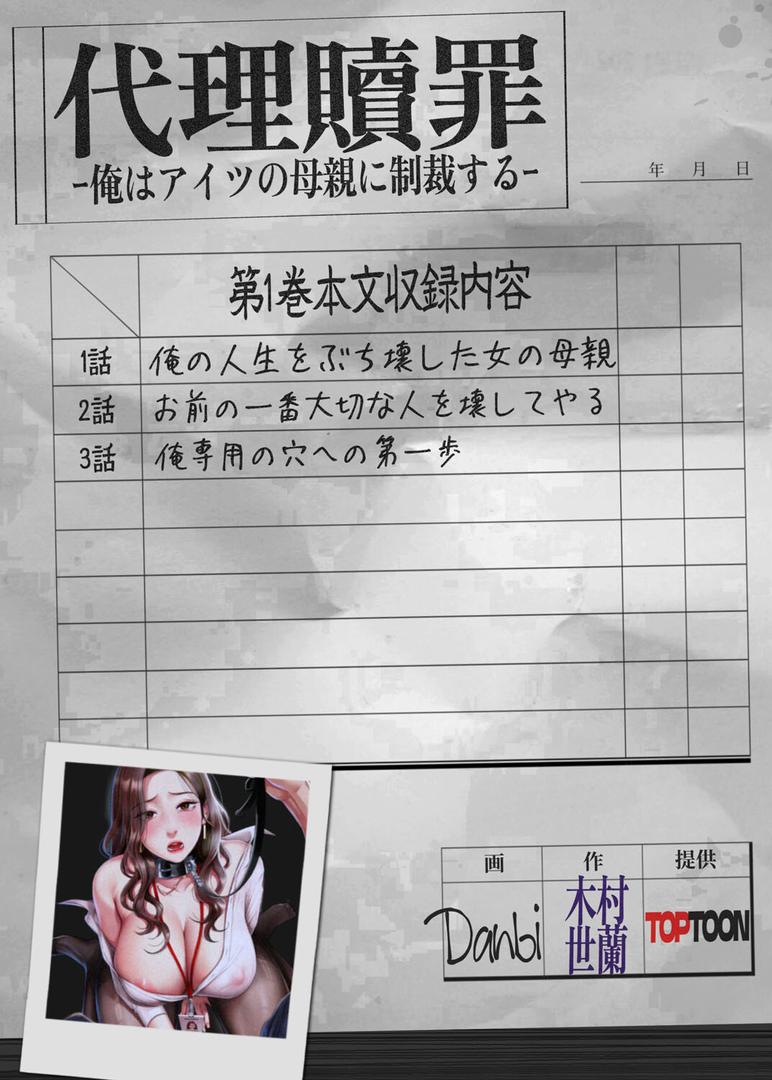 代理贖罪
-俺はアイツの母親に制裁する-
年 月 日
第1巻本文収録内容
1話 俺の人生をぶち壊した女の母親
2話 お前の一番大切な人を壊してやる
3話 俺専用の穴への第一歩
画 作 提供
Danbi 木村世蘭 TOPTOON